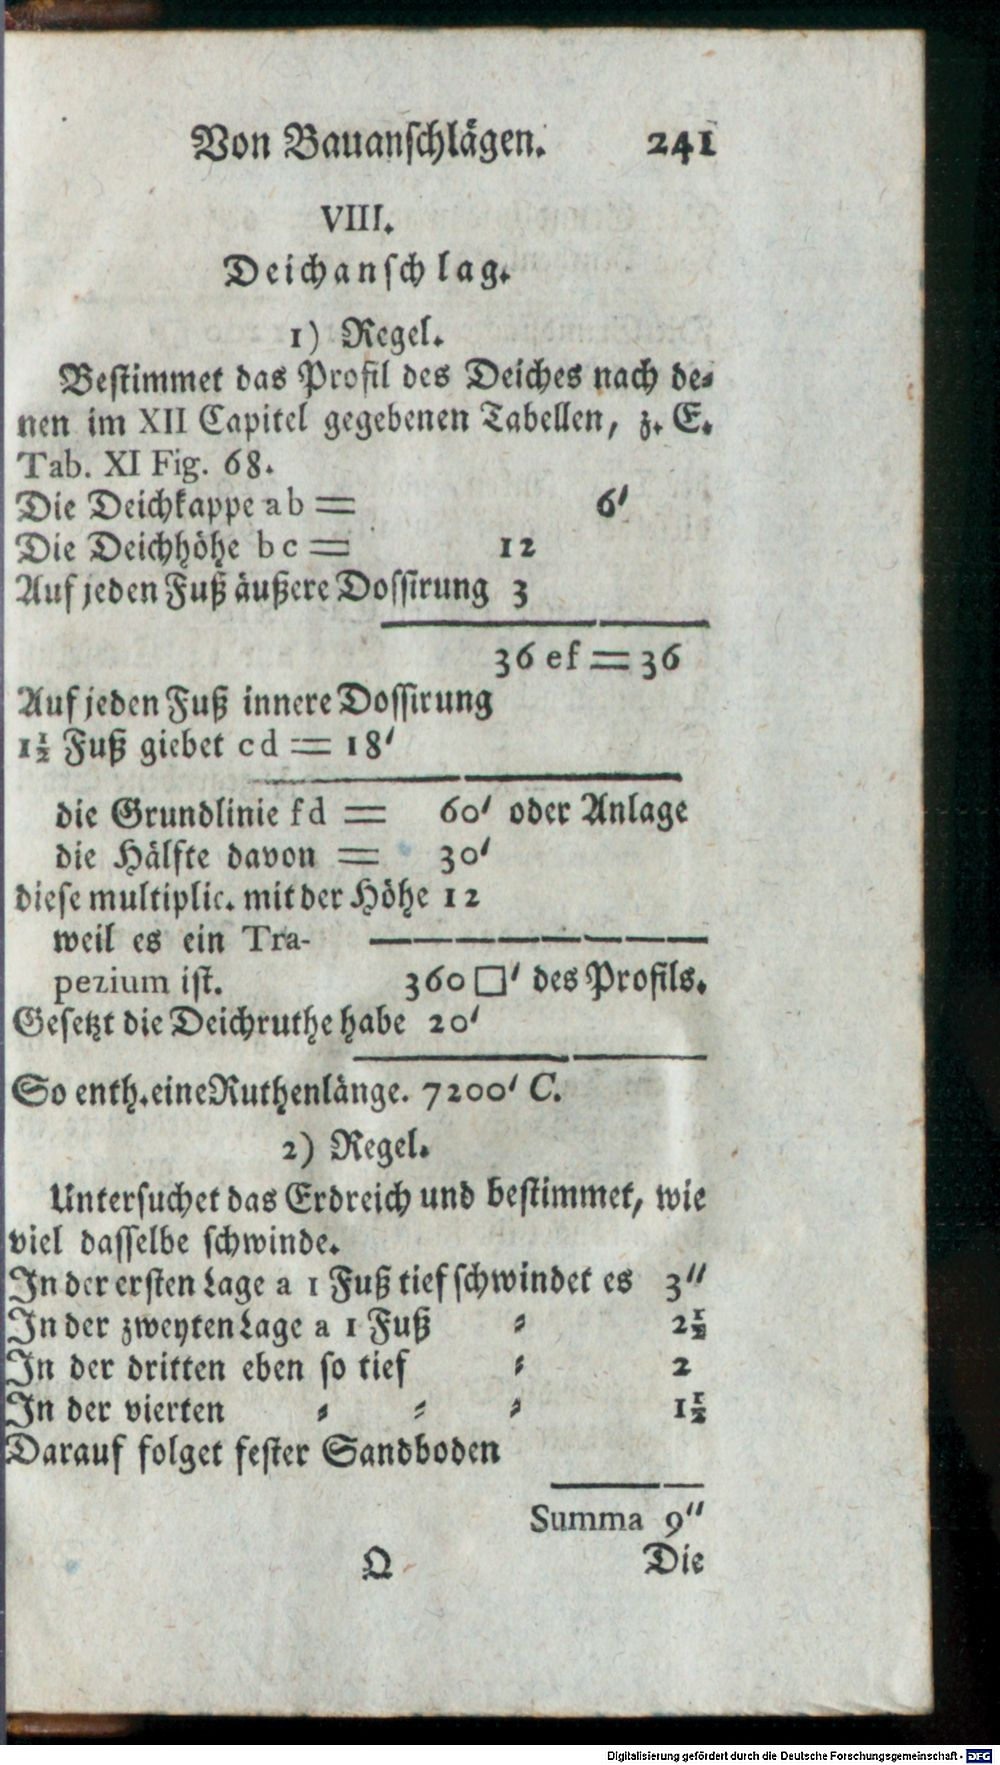 Von Bauanschlägen. 241
VIII.
Deichanschlag.
1) Regel.
Bestimmet das Profil des Deiches nach de-
nen im XII Capitel gegebenen Tabellen, z. E.
Tab. XI Fig. 68.
Die Deichkappe a b = 6′
Die Deichhöhe b c = 12
Auf jeden Fuß äußere Dossirung 3
36 ef = 36
Auf jeden Fuß innere Dossirung
1½ Fuß giebet c d = 18′
die Grundlinie f d = 60′ oder Anlage
die Hälfte davon = 30′
diese multiplic. mit der Höhe 12
weil es ein Tra-
pezium ist. 360 □′ des Profils.
Gesetzt die Deichruthe habe 20′
So enth. eine Ruthenlänge. 7200′ C.
2) Regel.
Untersuchet das Erdreich und bestimmet, wie
viel dasselbe schwinde.
In der ersten Lage a 1 Fuß tief schwindet es 3″
In der zweyten Lage a 1 Fuß = 2½
In der dritten eben so tief = 2
In der vierten = = = 1½
Darauf folget fester Sandboden
Summa 9″
Q Die
Digitalisierung gefördert durch die Deutsche Forschungsgemeinschaft - DFG